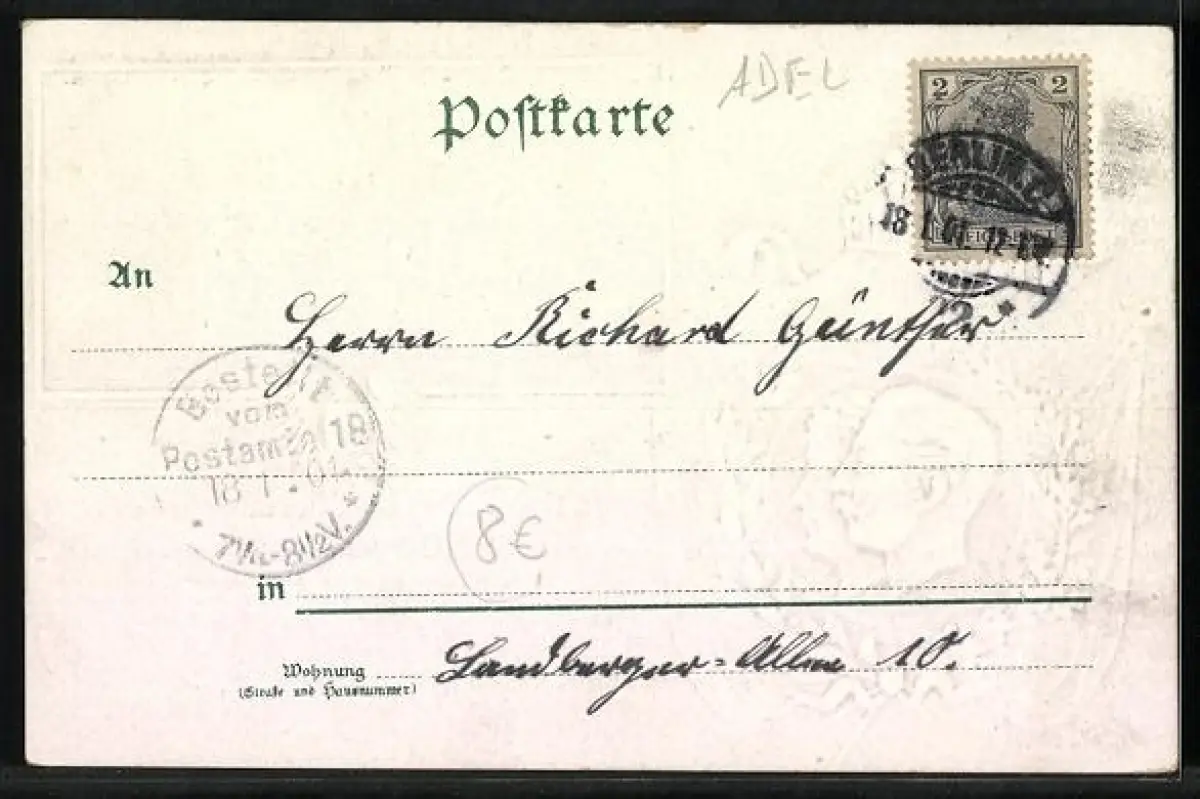 ADEL
Postkarte
2 2
BERLIN.C.
18.1.01. 12-
An
Herrn Richard Günther
Bestellt
vom
Postamte 18
18 1. 01
7 1/4-8 1/2 V.
8€
in
Landberger=Allee 10.
Wohnung
(Straße und Hausnummer)